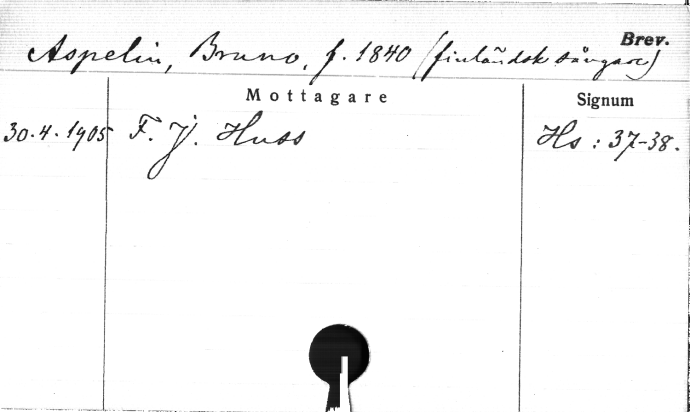 Brev.
Aspelin, Bruno, f. 1840 (finländsk sångare)
Mottagare Signum
30.4.1905 F. J. Huss Hs: 37-38.